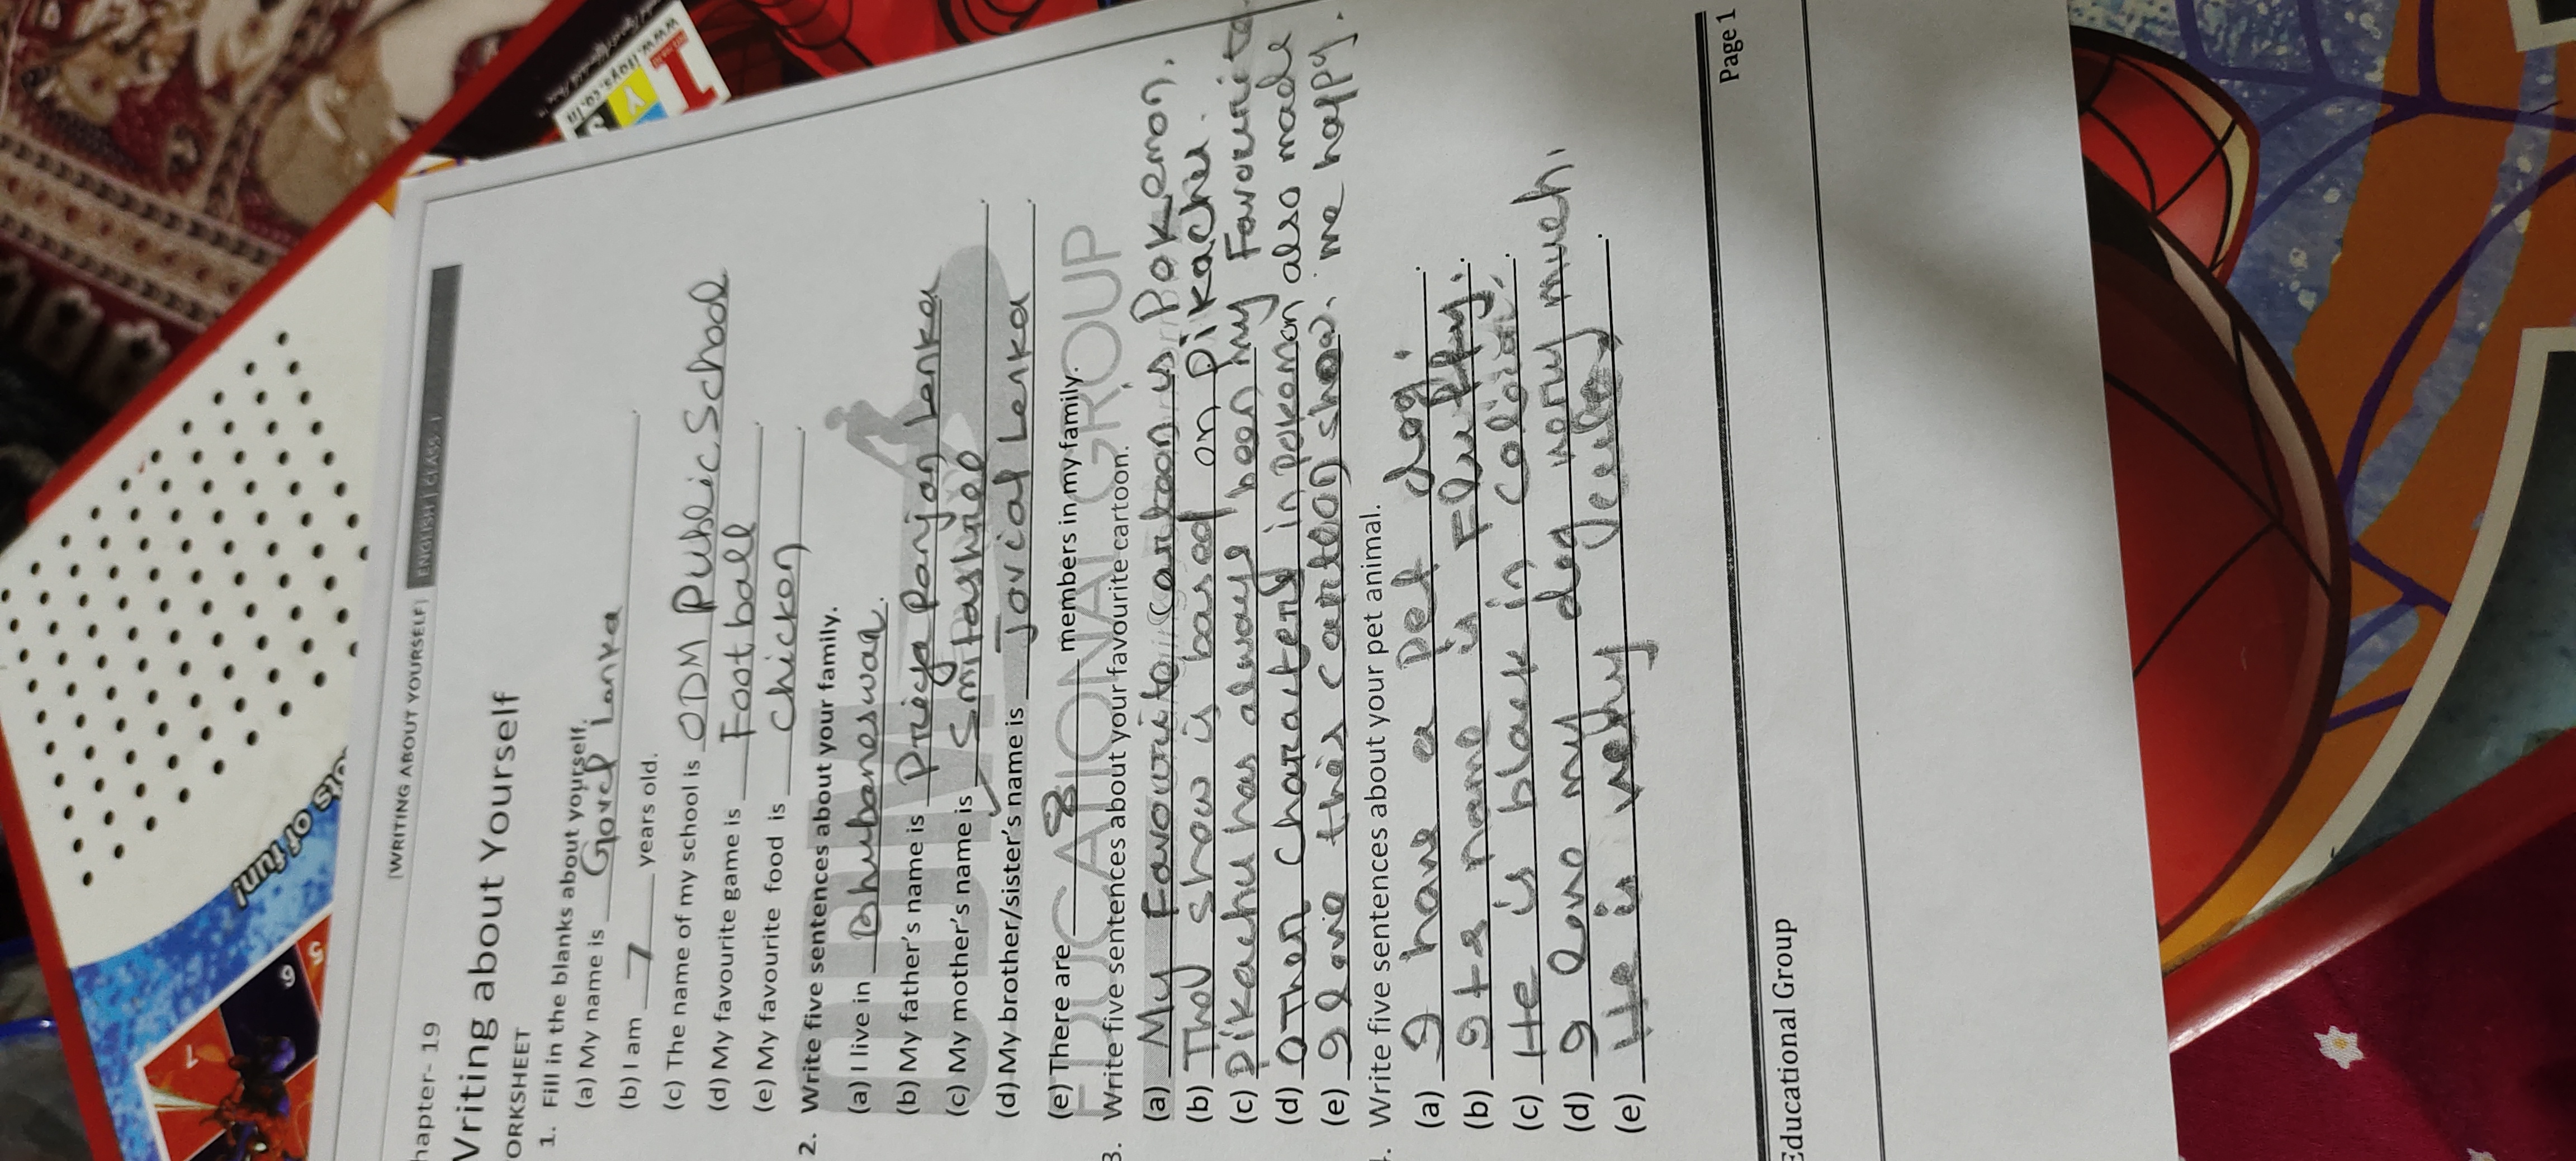 [WRITING ABOUT YOURSELF] ENGLISH | CLASS- I
hapter- 19
Writing about Yourself
ORKSHEET
1. Fill in the blanks about yourself.
(a) My name is Lenka
(b) I am 7 years old.
(c) The name of my school is ODM Public School
(d) My favourite game is Foot ball
(e) My favourite food is chicken
2. Write five sentences about your family.
(a) I live in Bhubaneswar.
(b) My father's name is Priya Ranjan Lenka
(c) My mother's name is Smitashree
(d) My brother/sister's name is Jovial Lenka
(e) There are 8 members in my family.
3. Write five sentences about your favourite cartoon.
(a) My Favourite cartoon is Pokemon.
(b) The show is based on pikachu.
(c) pikachu has always been my Favourite
(d) OTher characters in pokemon also made
(e) I love this cartoon show. me happy.
. Write five sentences about your pet animal.
(a) I have a pet dog.
(b) Its name is Fluffy.
(c) He is black in colour.
(d) I love my dog very much.
(e) He is very
ODM
EDUCATIONAL GROUP
Educational Group Page 1
www.itoys.co.in
ols of fun!